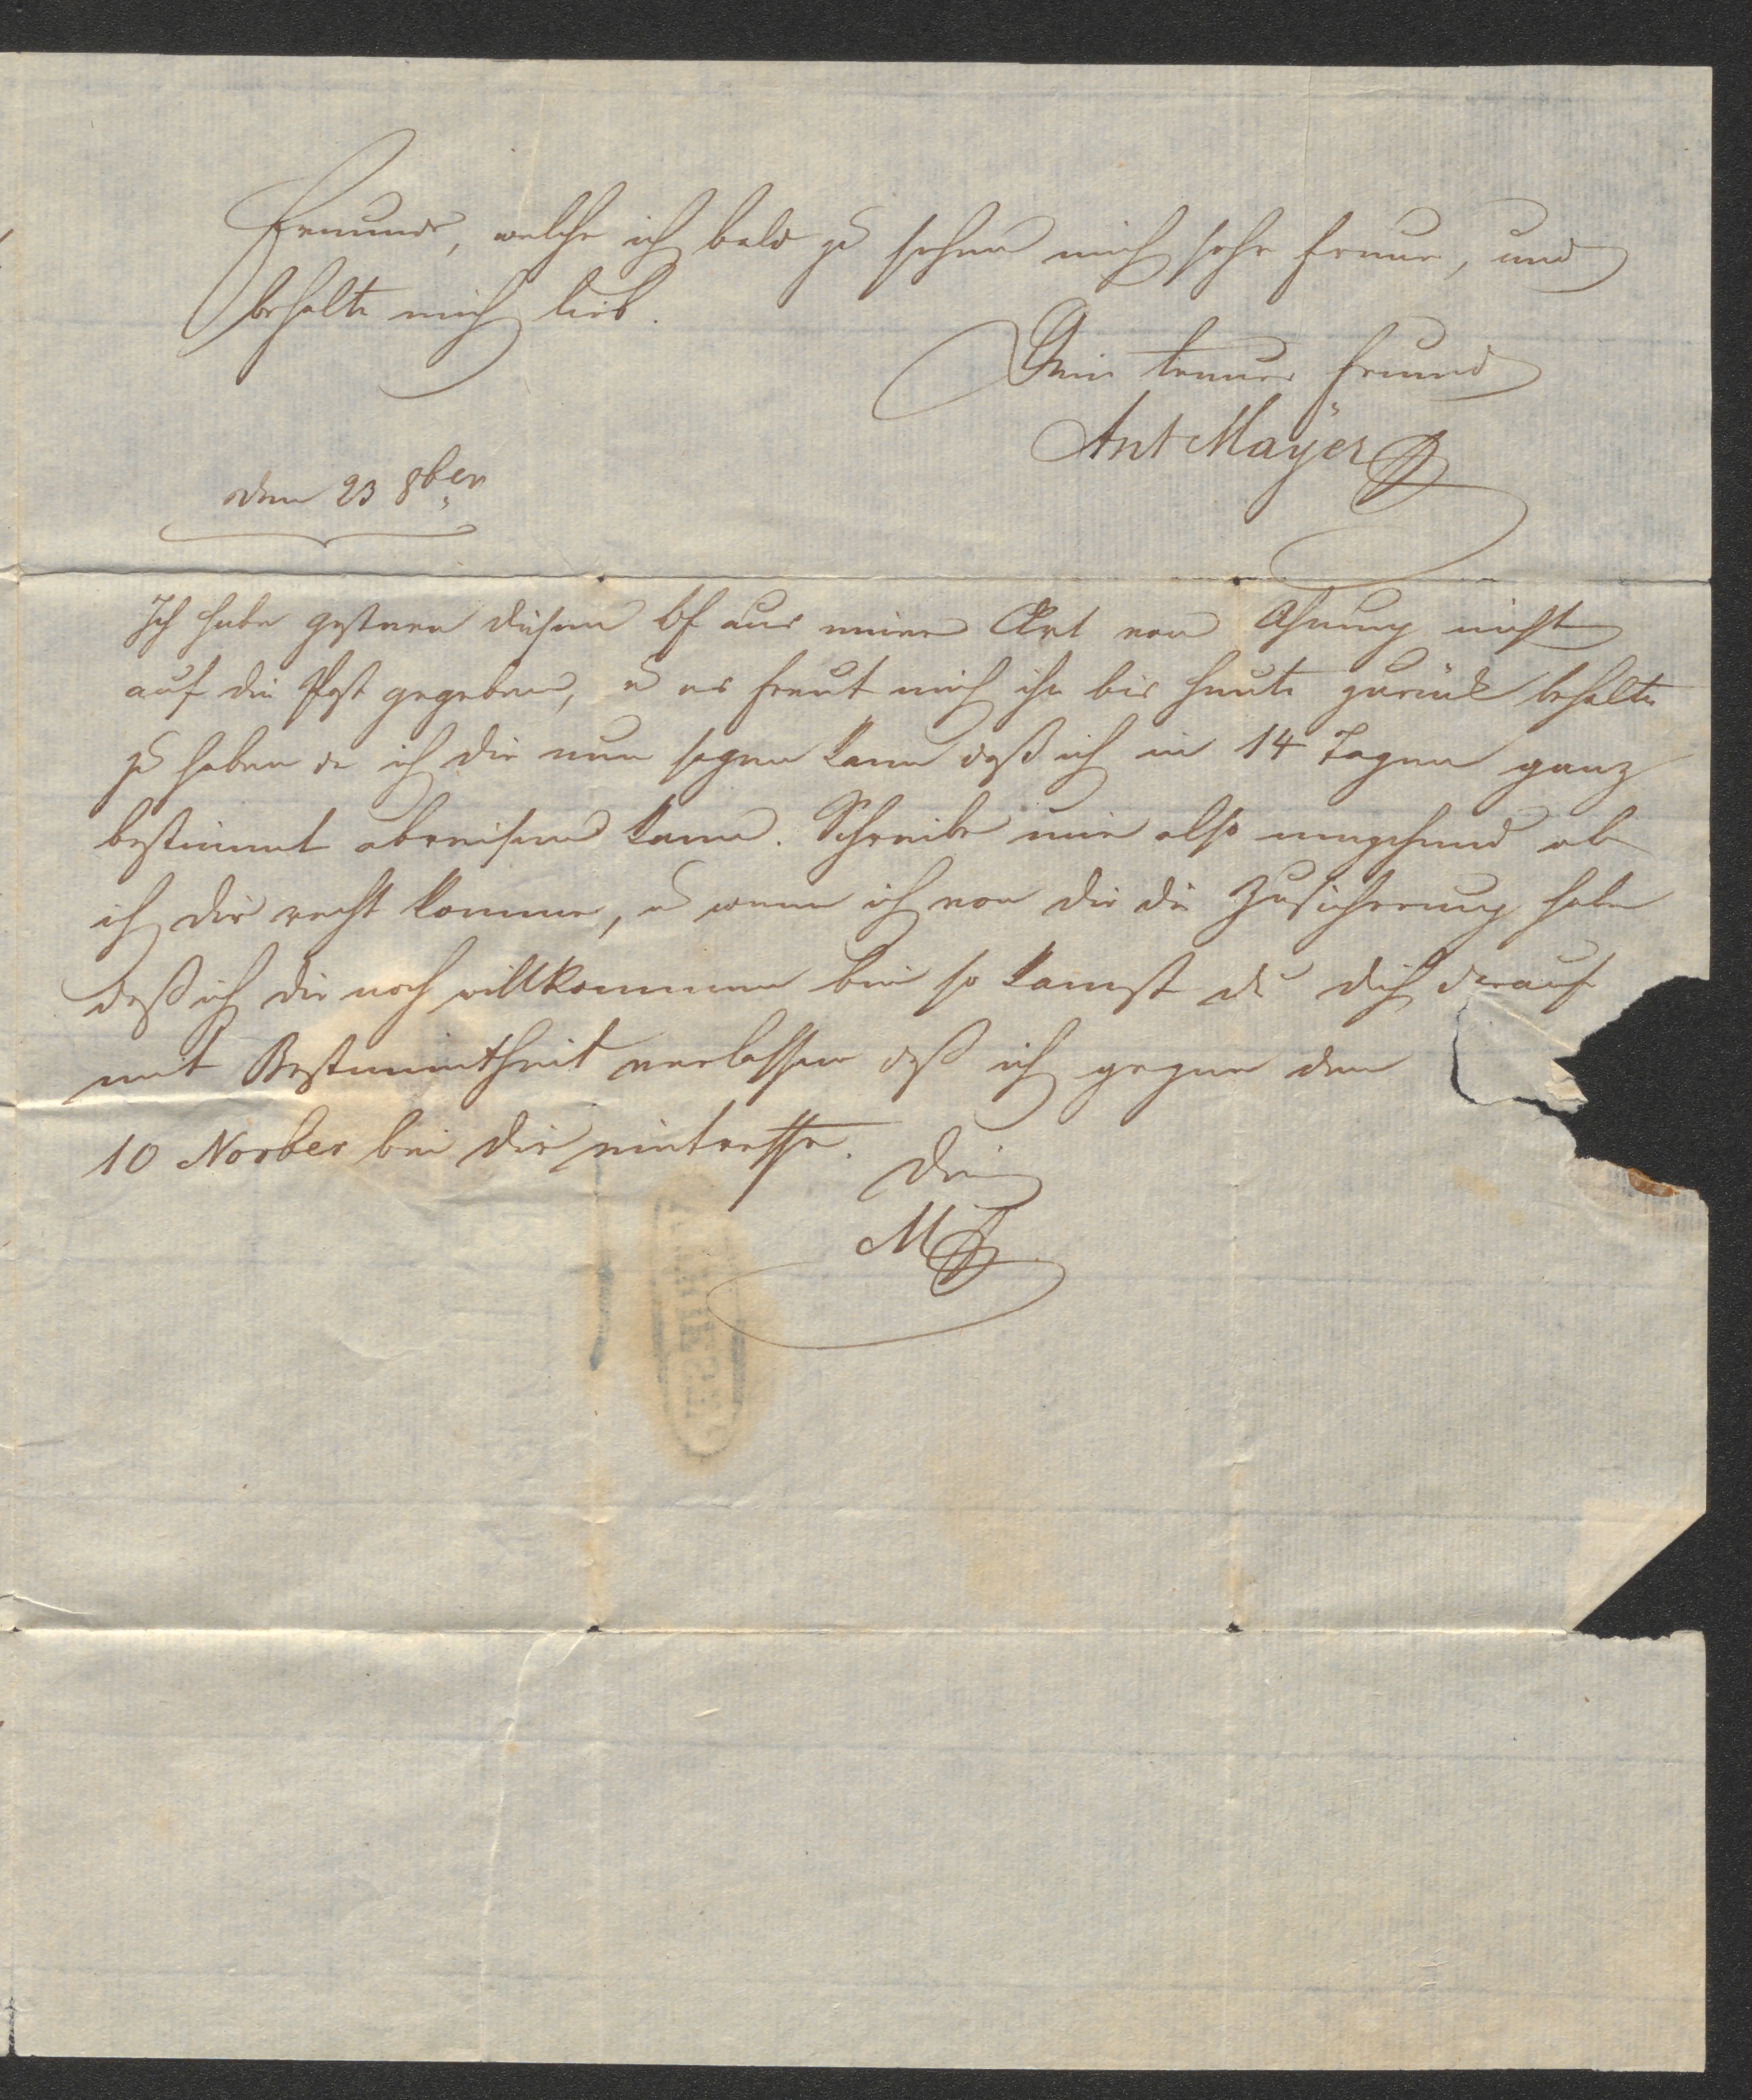 Freunde, welche ich bald zu sehen mich sehr freue, und
behalte mich lieb.
Dein treuer Freund
Ant Mayer
den 23 8ber
Ich habe gestern diesen Bf aus einer Art von Ahnung nicht
auf die Post gegeben, u es freut mich ihn bis heute zurück behalten
zu haben da ich dir nun sagen kann daß ich in 14 Tagen ganz
bestimmt abreisen kann. Schreibe mir also umgehend ob
ich dir recht komme, u wenn ich von dir die Zusicherung habe
daß ich dir noch willkommen bin so kannst du dich darauf
mit Bestimmtheit verlassen daß ich gegen den
10 Novber bei dir eintreffe.
Dein
M